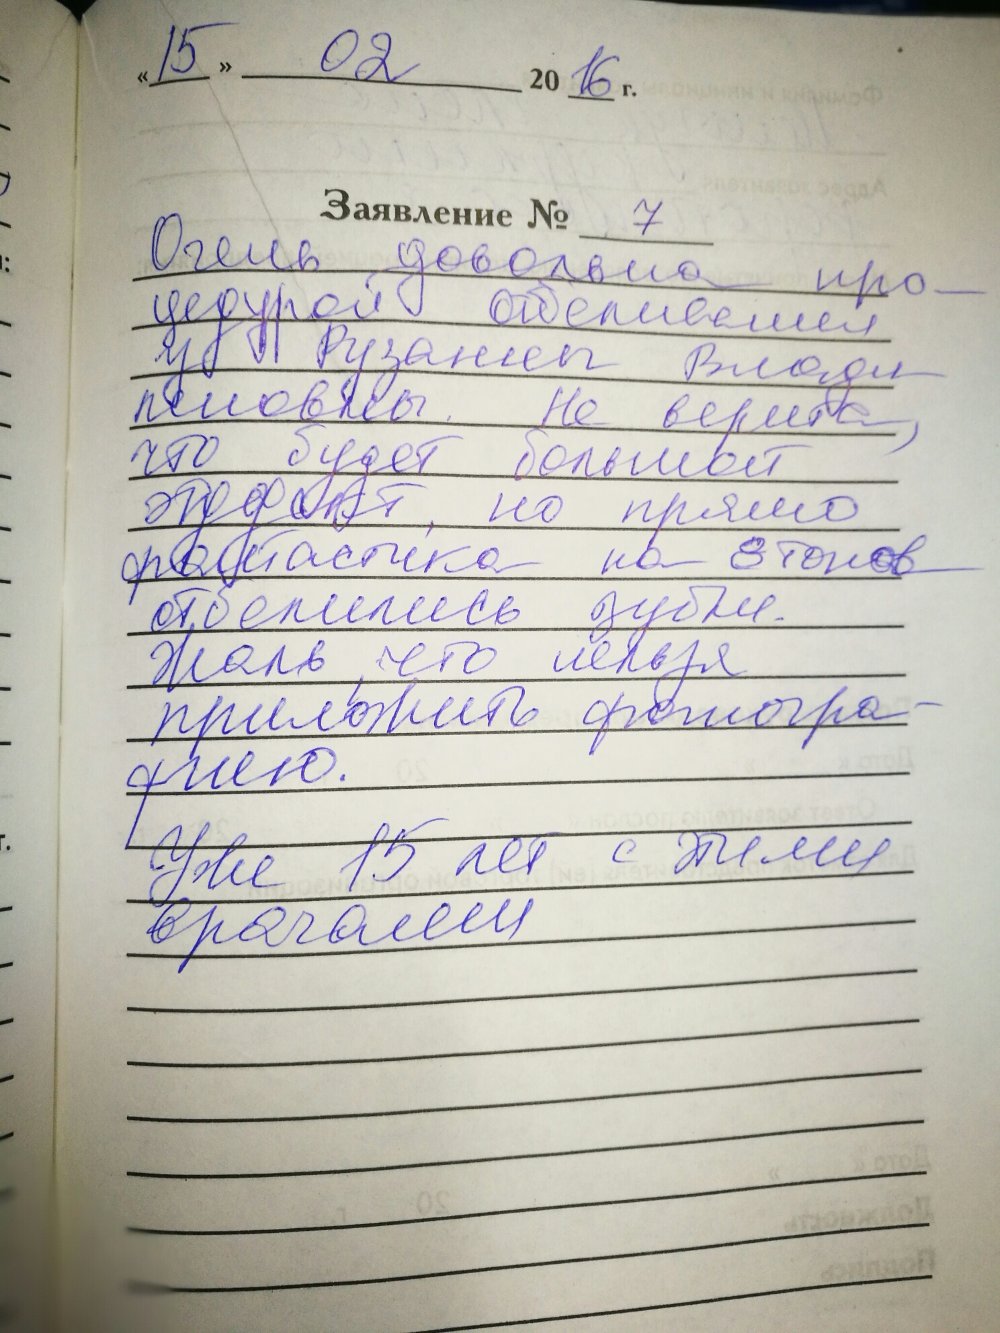 «15» 02 2016 г.
Заявление № 7
Очень довольна про-
цедурой отбеливания
у Рузанны Влади
мировны. Не верила,
что будет большой
эффект, но прямо
фантастика на 8 тонов
отбелились зубки.
Жаль, что нельзя
приложить фотогра-
фию.
Уже 15 лет с этими
врачами